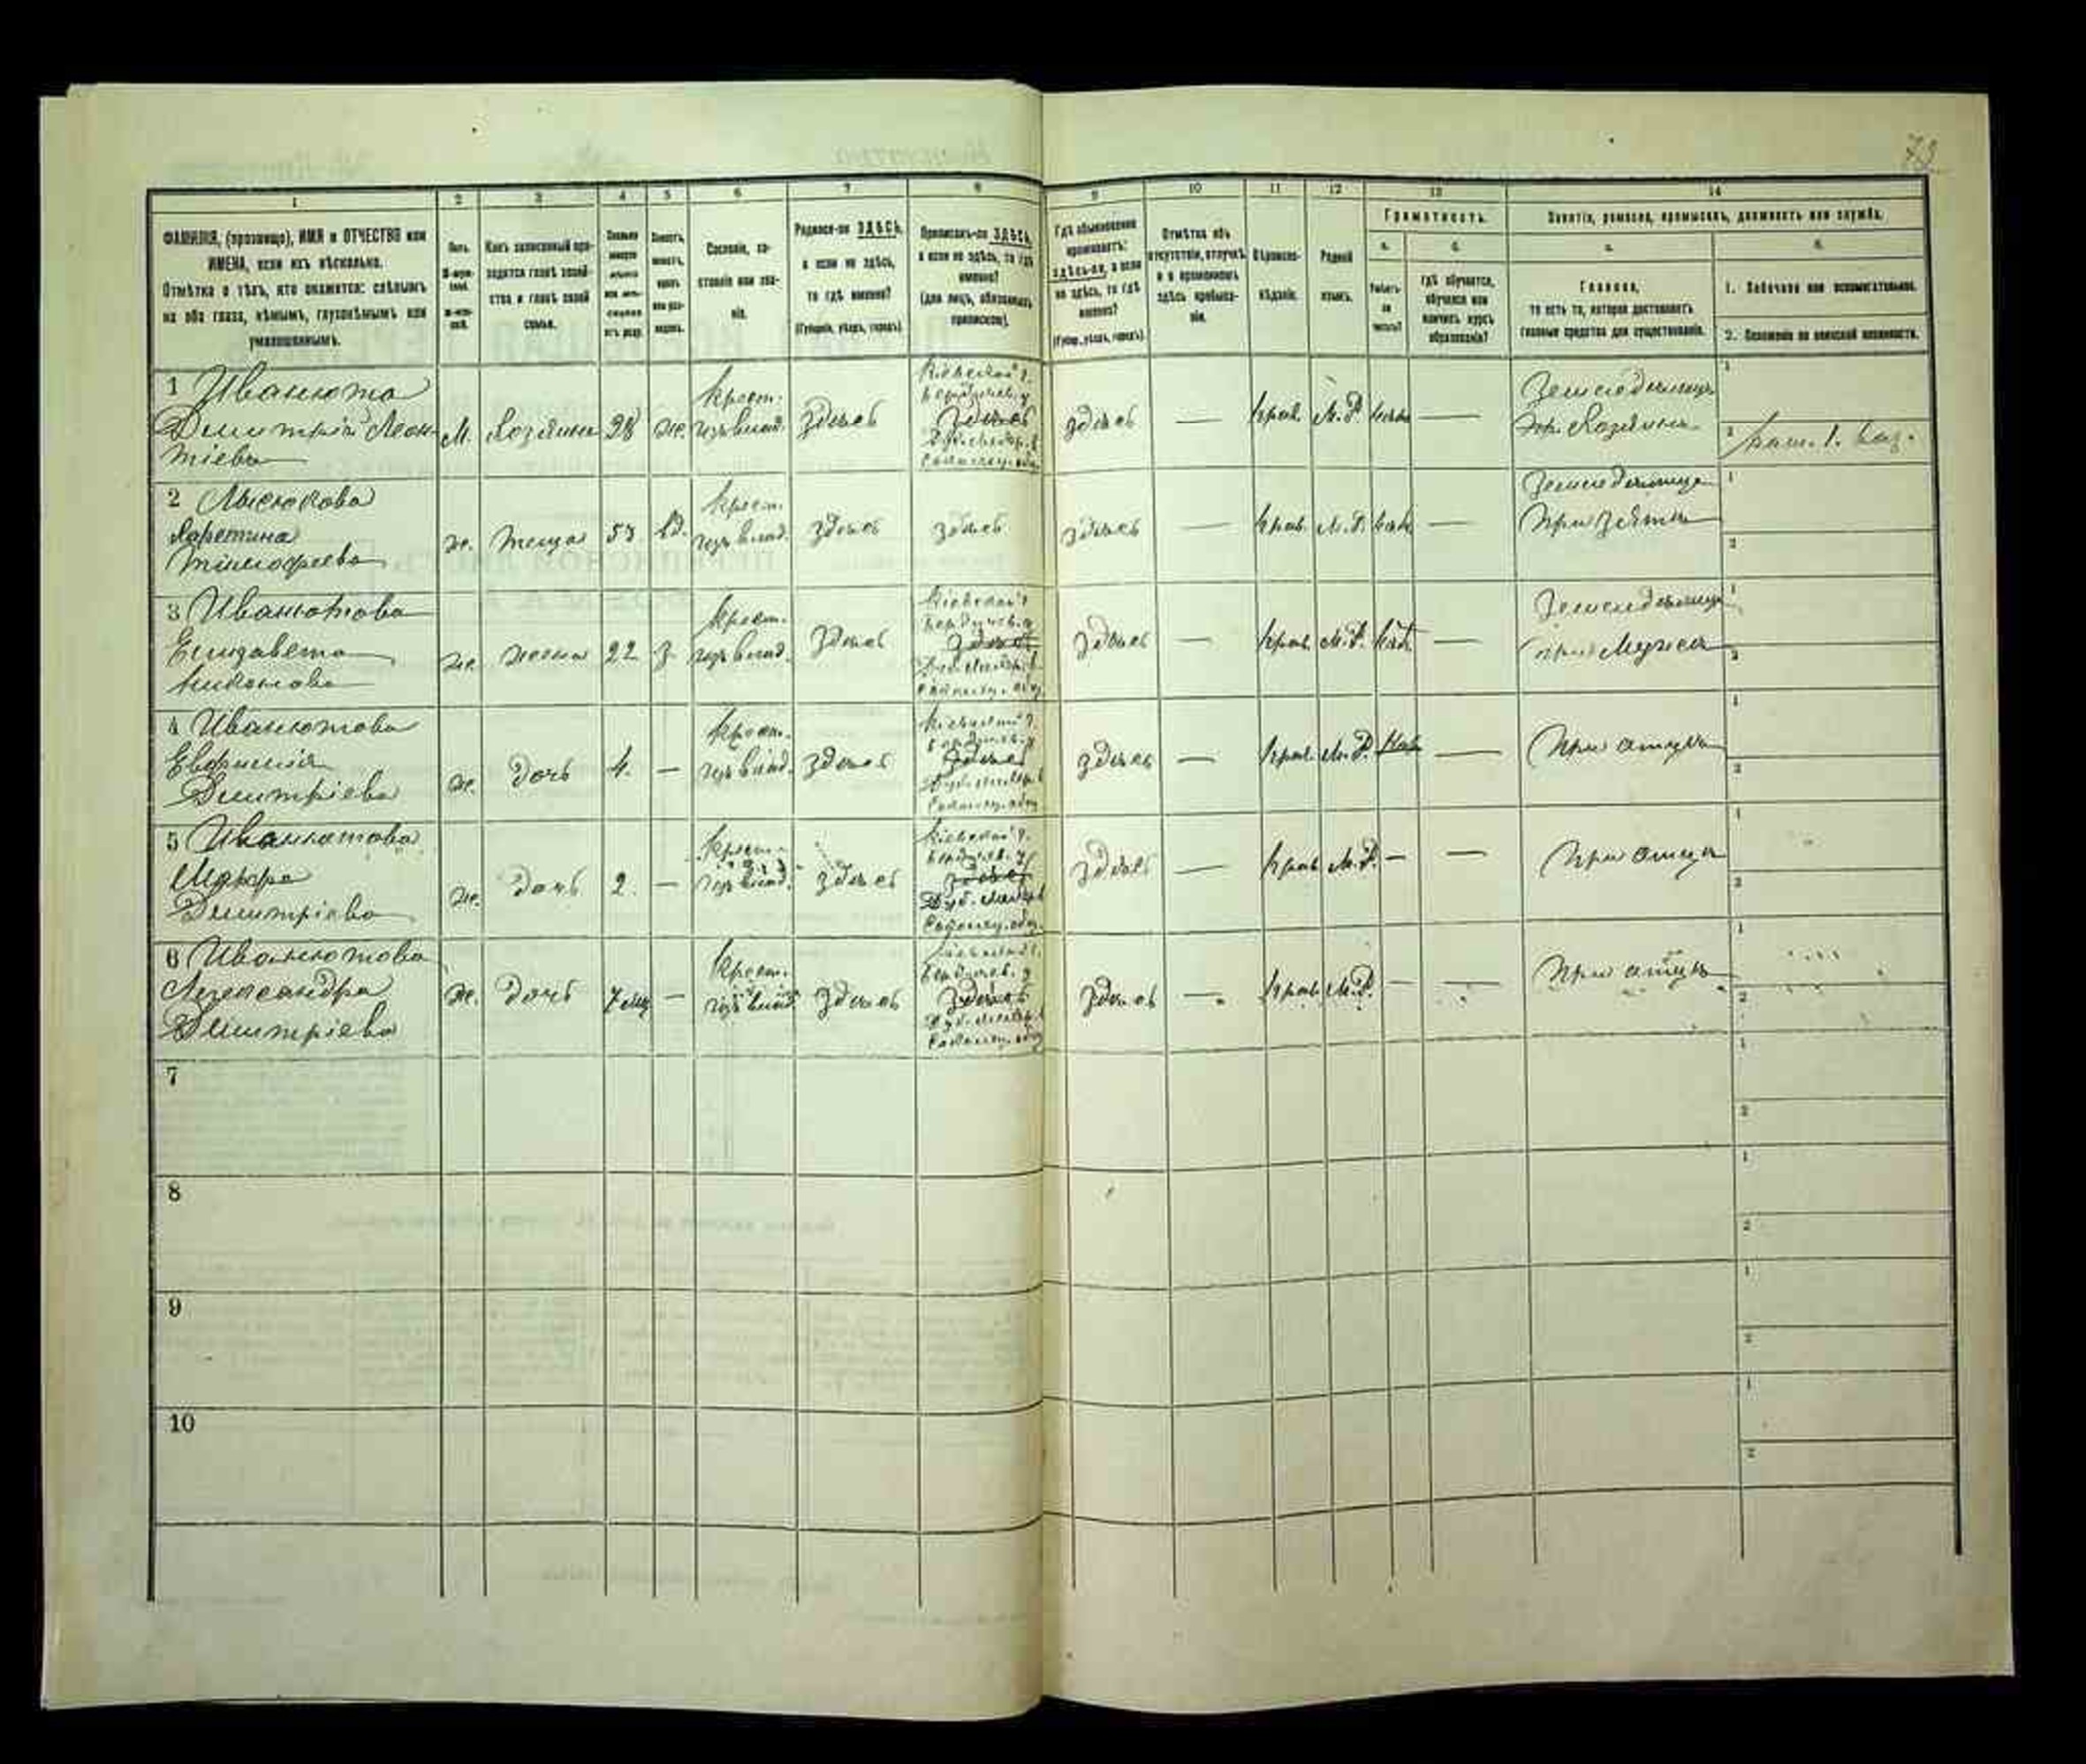 73
1 2 3 4 5 6 7 8 9 10 11 12 13 14
ФАМИЛІЯ, (прозвище), ИМЯ и ОТЧЕСТВО или
ИМЕНА, если ихъ нѣсколько.
Отмѣтка о тѣхъ, кто окажется: слѣпымъ
на оба глаза, нѣмымъ, глухонѣмымъ или
умалишеннымъ.
Полъ.
М-муж-
ской.
Ж-жен-
скій.
Какъ записанный при-
ходится главѣ хозяй-
ства и главѣ своей
семьи.
Сословіе, со-
стояніе или зва-
ніе.
Родился-ли ЗДѢСЬ,
а если не здѣсь,
то гдѣ именно?
(Губернія, уѣздъ, городъ)
Приписанъ-ли ЗДѢСЬ,
а если не здѣсь, то гдѣ
именно?
(для лицъ, обязанныхъ
припиской).
Гдѣ обыкновенно
проживаетъ:
здѣсь-ли, а если
не здѣсь, то гдѣ
именно?
(Губер., уѣздъ, городъ)
Отмѣтка объ
отсутствіи, отлучкѣ
и о временномъ
здѣсь пребыва-
ніи.
Вѣроиспо-
вѣданіе.
Родной
языкъ.
Грамотность.
а.
Умѣетъ-
ли
читать?
б.
гдѣ обучается,
обучался или
кончилъ курсъ
образованія?
Занятіе, ремесло, промыселъ, должность или служба.
а.
Главное,
то есть то, которое доставляетъ
главныя средства для существованія.
б.
1. Побочное или вспомогательное.
2. Положеніе по воинской повинности.
1 Иванюта
Дмитрій Леон-
тіевъ
М. Хозяинъ 28 же.
крест.
изъ влад.
здѣсь
Кіевской г.
Бердичев. у
здѣсь
здѣсь — прав. М.Р.
Земледѣлецъ
Хозяинъ
2 Лысюкова
Харетина
Тимофеева
ж. теща 53 вд.
крест.
изъ влад.
здѣсь здѣсь здѣсь — прав. М.Р. —
Земледѣлица
При Зятѣ
3 Иванютова
Елизавета
Никонова
ж. жена 22 з.
крест.
изъ влад.
здѣсь
Кіевской г
Бердичев. у
здѣсь
здѣсь — прав. М.Р. —
Земледѣлица
при Мужѣ
4 Иванютова
Евфимія
Дмитріева
ж. дочь 4. —
крест.
изъ влад.
здѣсь
Кіевской г.
Бердичев. у
здѣсь
здѣсь — прав. М.Р. —
При отцѣ
5 Иванютова
Марфа
Дмитріева
ж. дочь 2. —
крест.
изъ влад.
здѣсь
Кіевской г.
Бердичев. у
здѣсь
здѣсь — прав. М.Р. — —
При отцѣ
6 Иванютова
Александра
Дмитріева
ж. дочь 7 мѣс —
крест.
изъ влад.
здѣсь
Кіевской г.
Бердичев. у
здѣсь
здѣсь — прав. М.Р. — —
При отцѣ
7
8
9
10